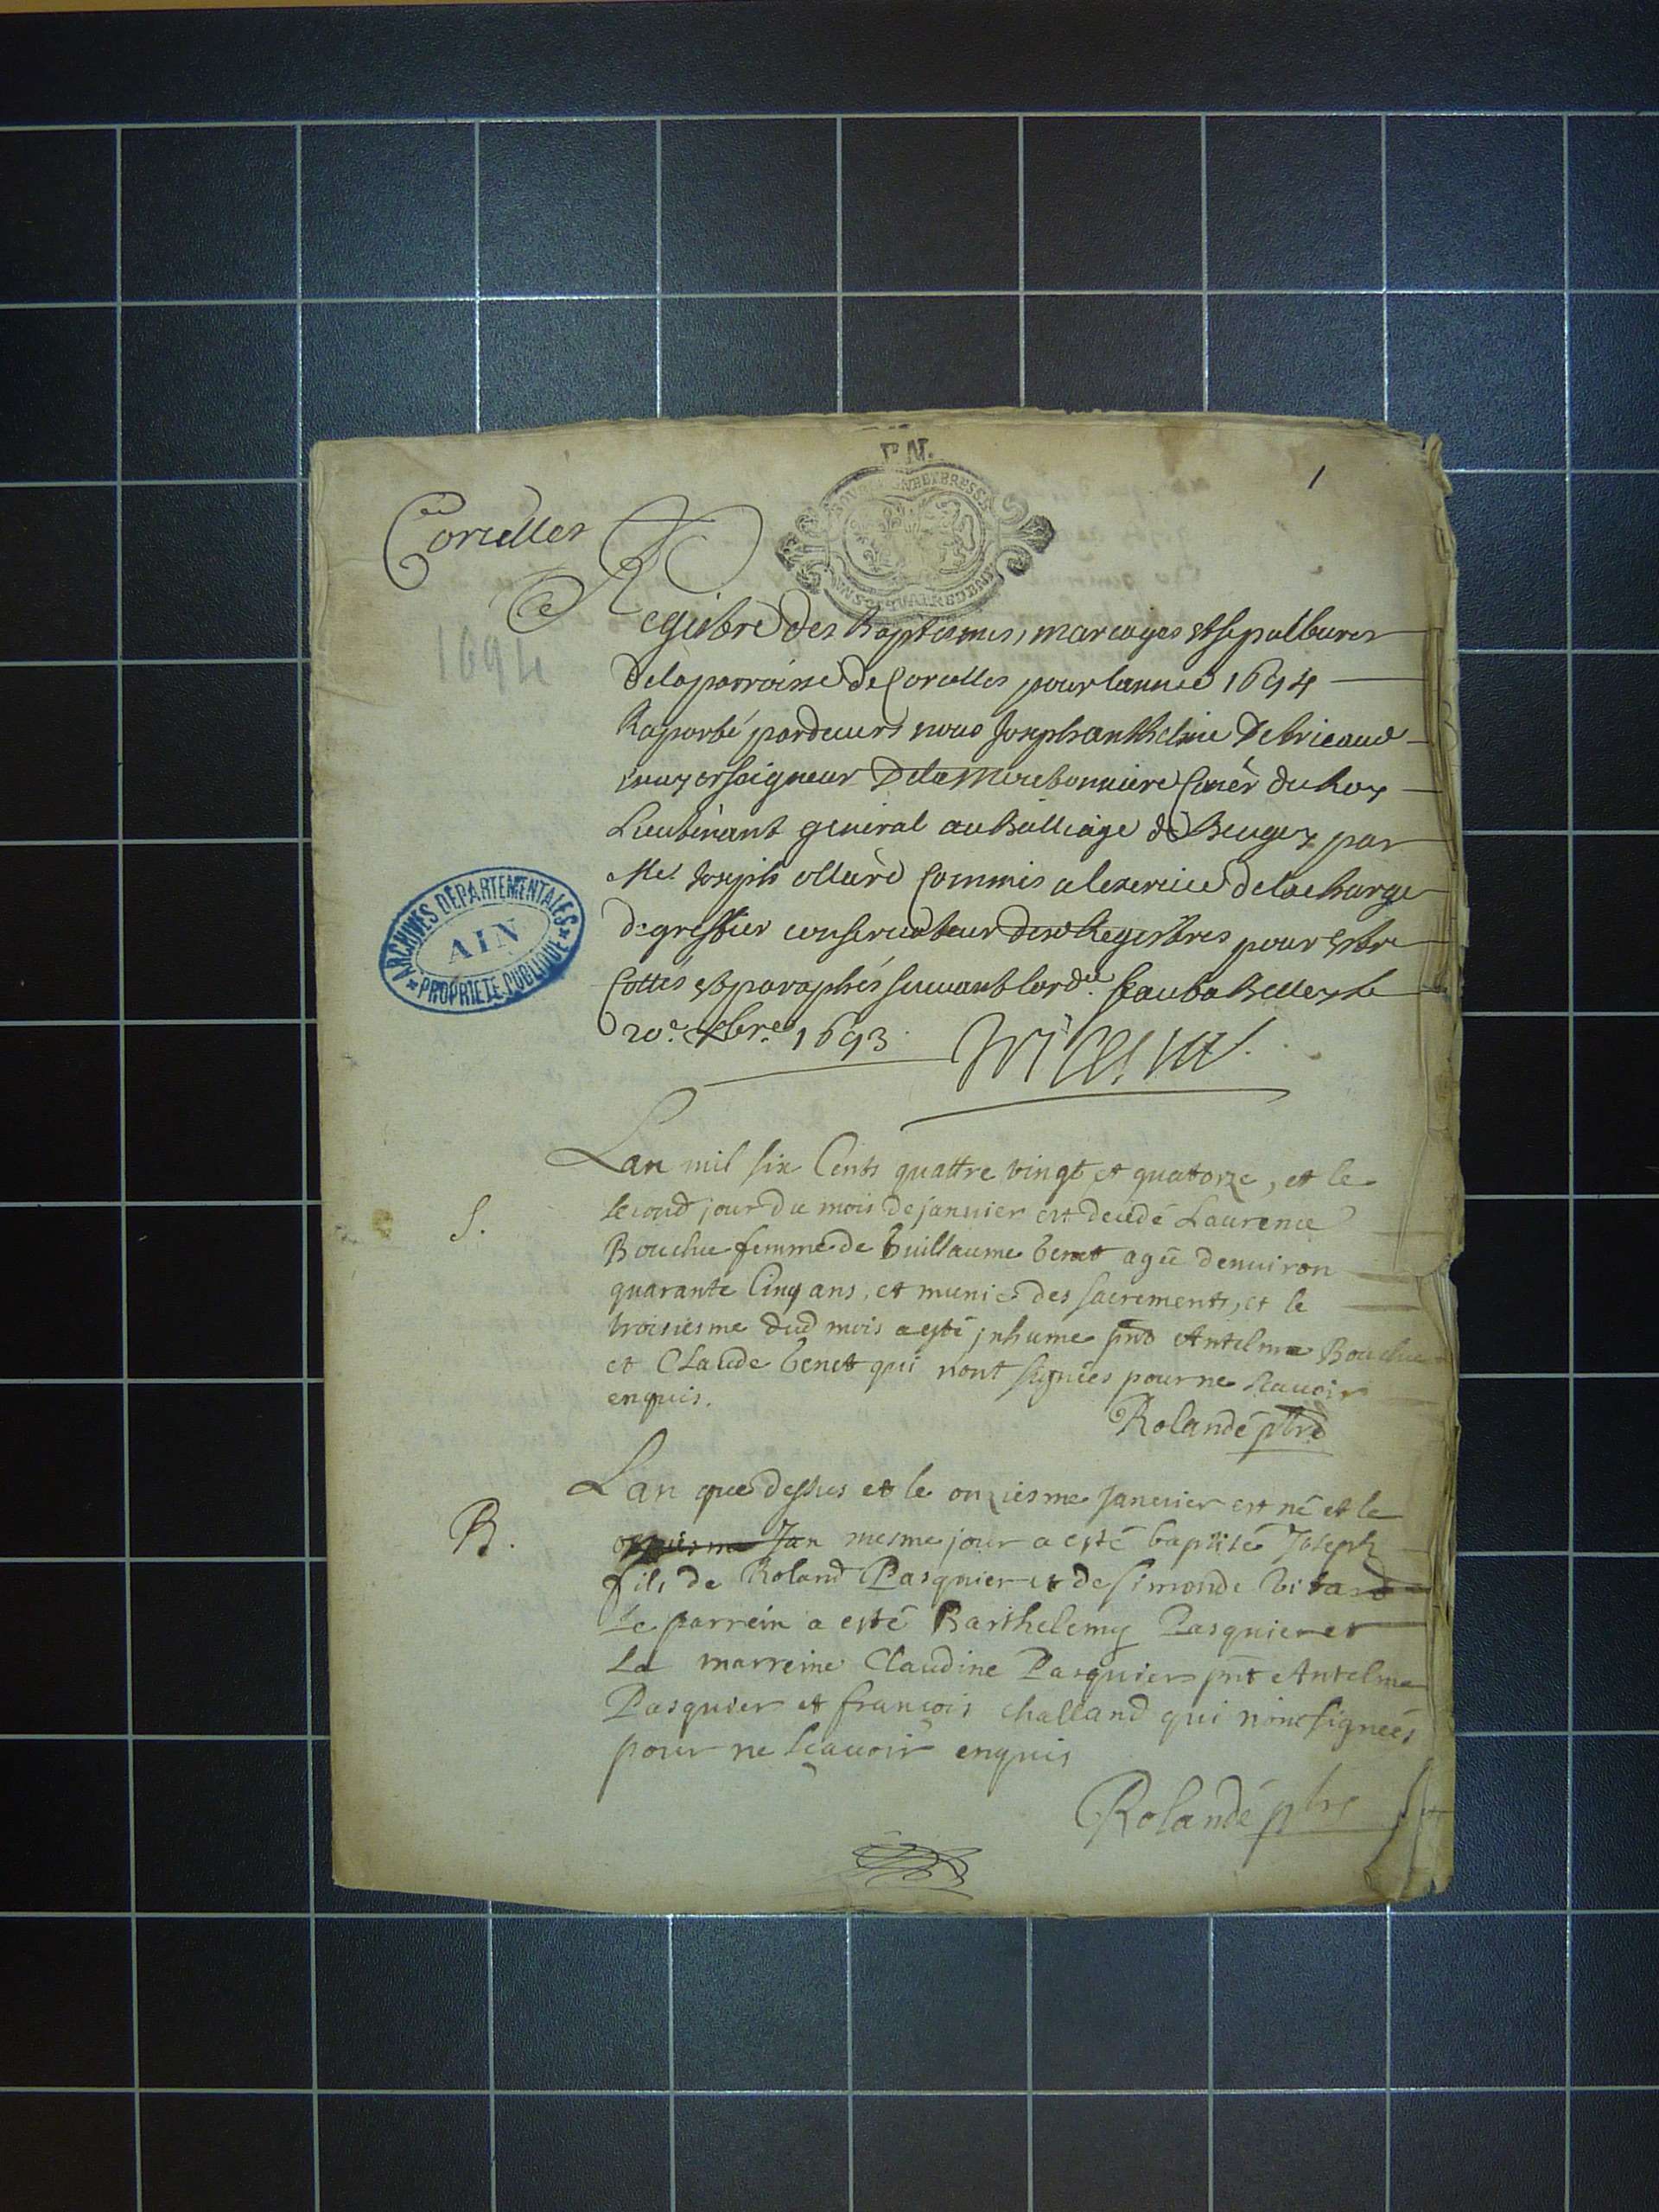 P.N.
1
Corcelles
1694
Registre des Baptesmes, mariages et sepultures
de la parroisse de Corcelles pour lannee 1694
Raporté pardevers nous Joseph anthelme Debricaud
seigneur Dela Mirebonniere Conêr du Roy
Lieutenant general au Balliage de Beugey par
Me Joseph commis a lexercice de la charge
de greffier conservateur desd Registres pour estre
Cottés et paraphés suivant lordce. fait a Belley le
20e. xbre 1693
ARCHIVES DÉPARTEMENTALES
AIN
PROPRIÉTÉ PUBLIQUE
S.
Lan mil six Cents quattre vingt et quatorze, et le
second jour du mois de januier est decedé Laurence
Bouchu femme de Guillaume benet agée denuiron
quarante Cinq ans, et munie des sacrements, et le
troisiesme dud mois a esté jnhume pnts Antelme Bouchu
et Claude benet qui nont signées pour ne scauoir
enquis.
Rolandé ptre
B.
Lan que dessus et le onziesme Januier est né et le
onziesme Jan mesme jour a esté baptisé Joseph
fils de Roland Pasquier et de simonde
Le parrein a esté Barthelemy Pasquier et
La marreine Claudine Pasquier pnt Antelme
Pasquier et françois challand qui nont signées
pour ne sçauoir enquis
Rolandé ptre